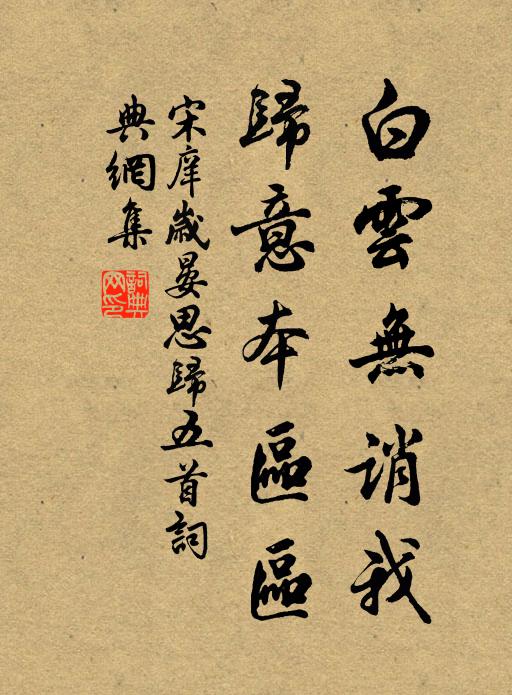 白雲無誚我
歸意本區區
宋庠歲晏思歸五首詞
典網集
詞典網印